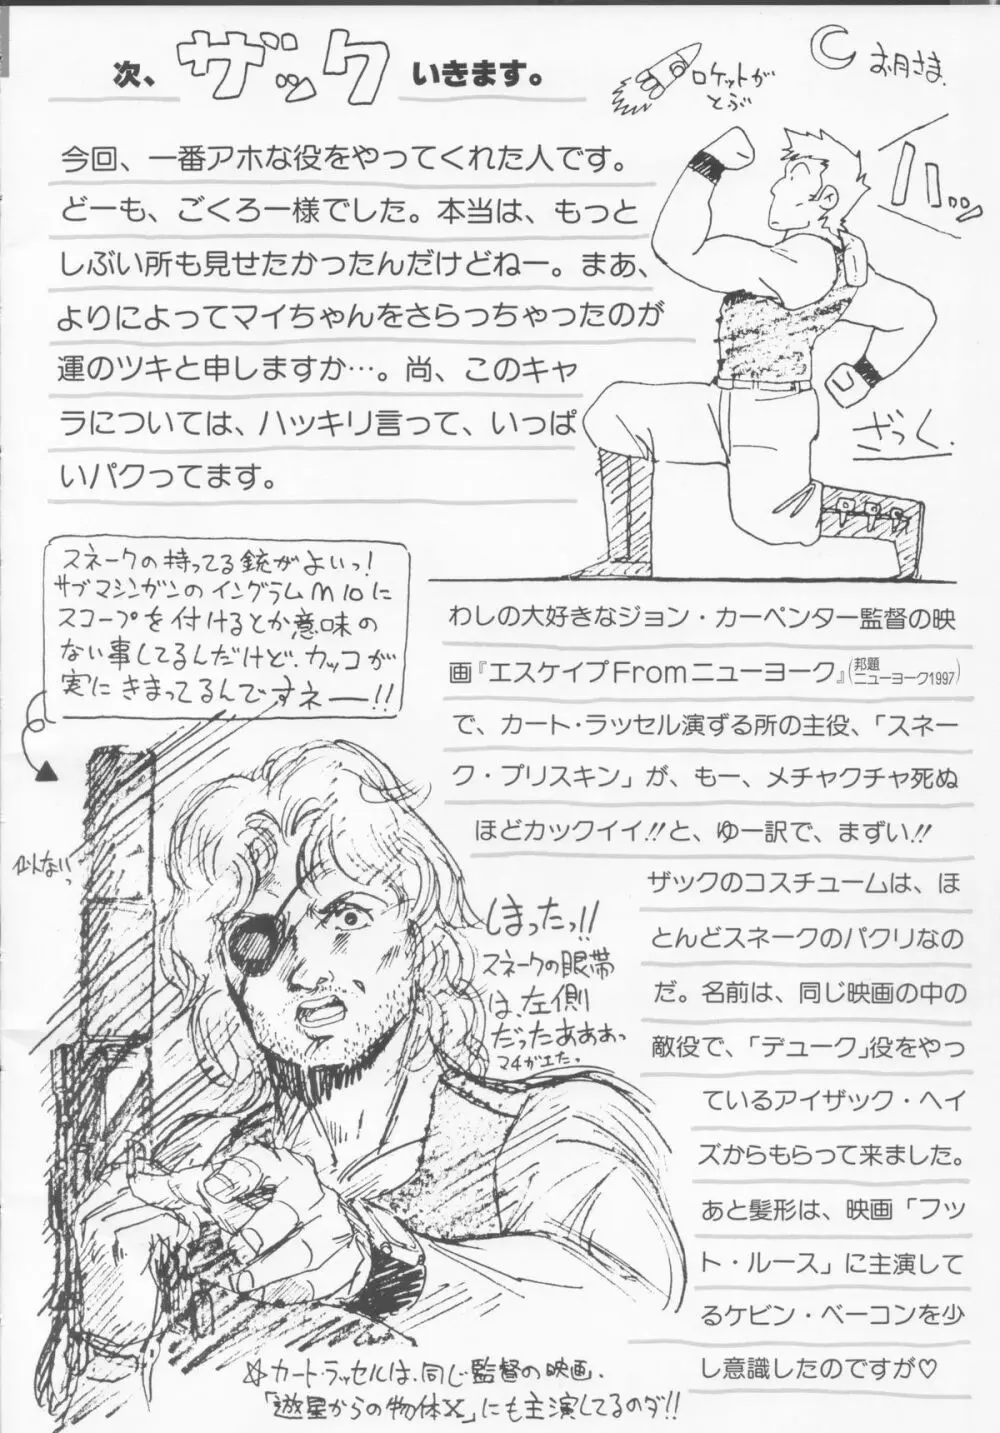 次、ザックいきます。
ロケットが
とぶ
お月さま。
今回、一番アホな役をやってくれた人です。
どーも、ごくろー様でした。本当は、もっと
しぶい所も見せたかったんだけどねー。まあ、
よりによってマイちゃんをさらっちゃったのが
運のツキと申しますか…。尚、このキャ
ラについては、ハッキリ言って、いっぱ
いパクってます。
ハッ
ざっく.
スネークの持ってる銃がよいっ!
サブマシンガンのイングラムM10に
スコープを付けるとか意味の
ない事してるんだけど、カッコが
実にきまってるんですネー!!
わしの大好きなジョン・カーペンター監督の映
画『エスケイプFromニューヨーク』(邦題 ニューヨーク1997)
で、カート・ラッセル演ずる所の主役、「スネー
ク・プリスキン」が、もー、メチャクチャ死ぬ
ほどカックイイ!!と、ゆー訳で、まずい!!
ザックのコスチュームは、ほ
とんどスネークのパクリなの
だ。名前は、同じ映画の中の
敵役で、「デューク」役をやっ
ているアイザック・ヘイ
ズからもらって来ました。
あと髪形は、映画「フッ
ト・ルース」に主演して
るケビン・ベーコンを少
し意識したのですが♡
似んないっ
しまったっ!!
スネークの眼帯
は、左側
だったあぁぁっ
マチガエた。
☆カート・ラッセルは、同じ監督の映画、
「遊星からの物体X」にも主演してるのダ!!